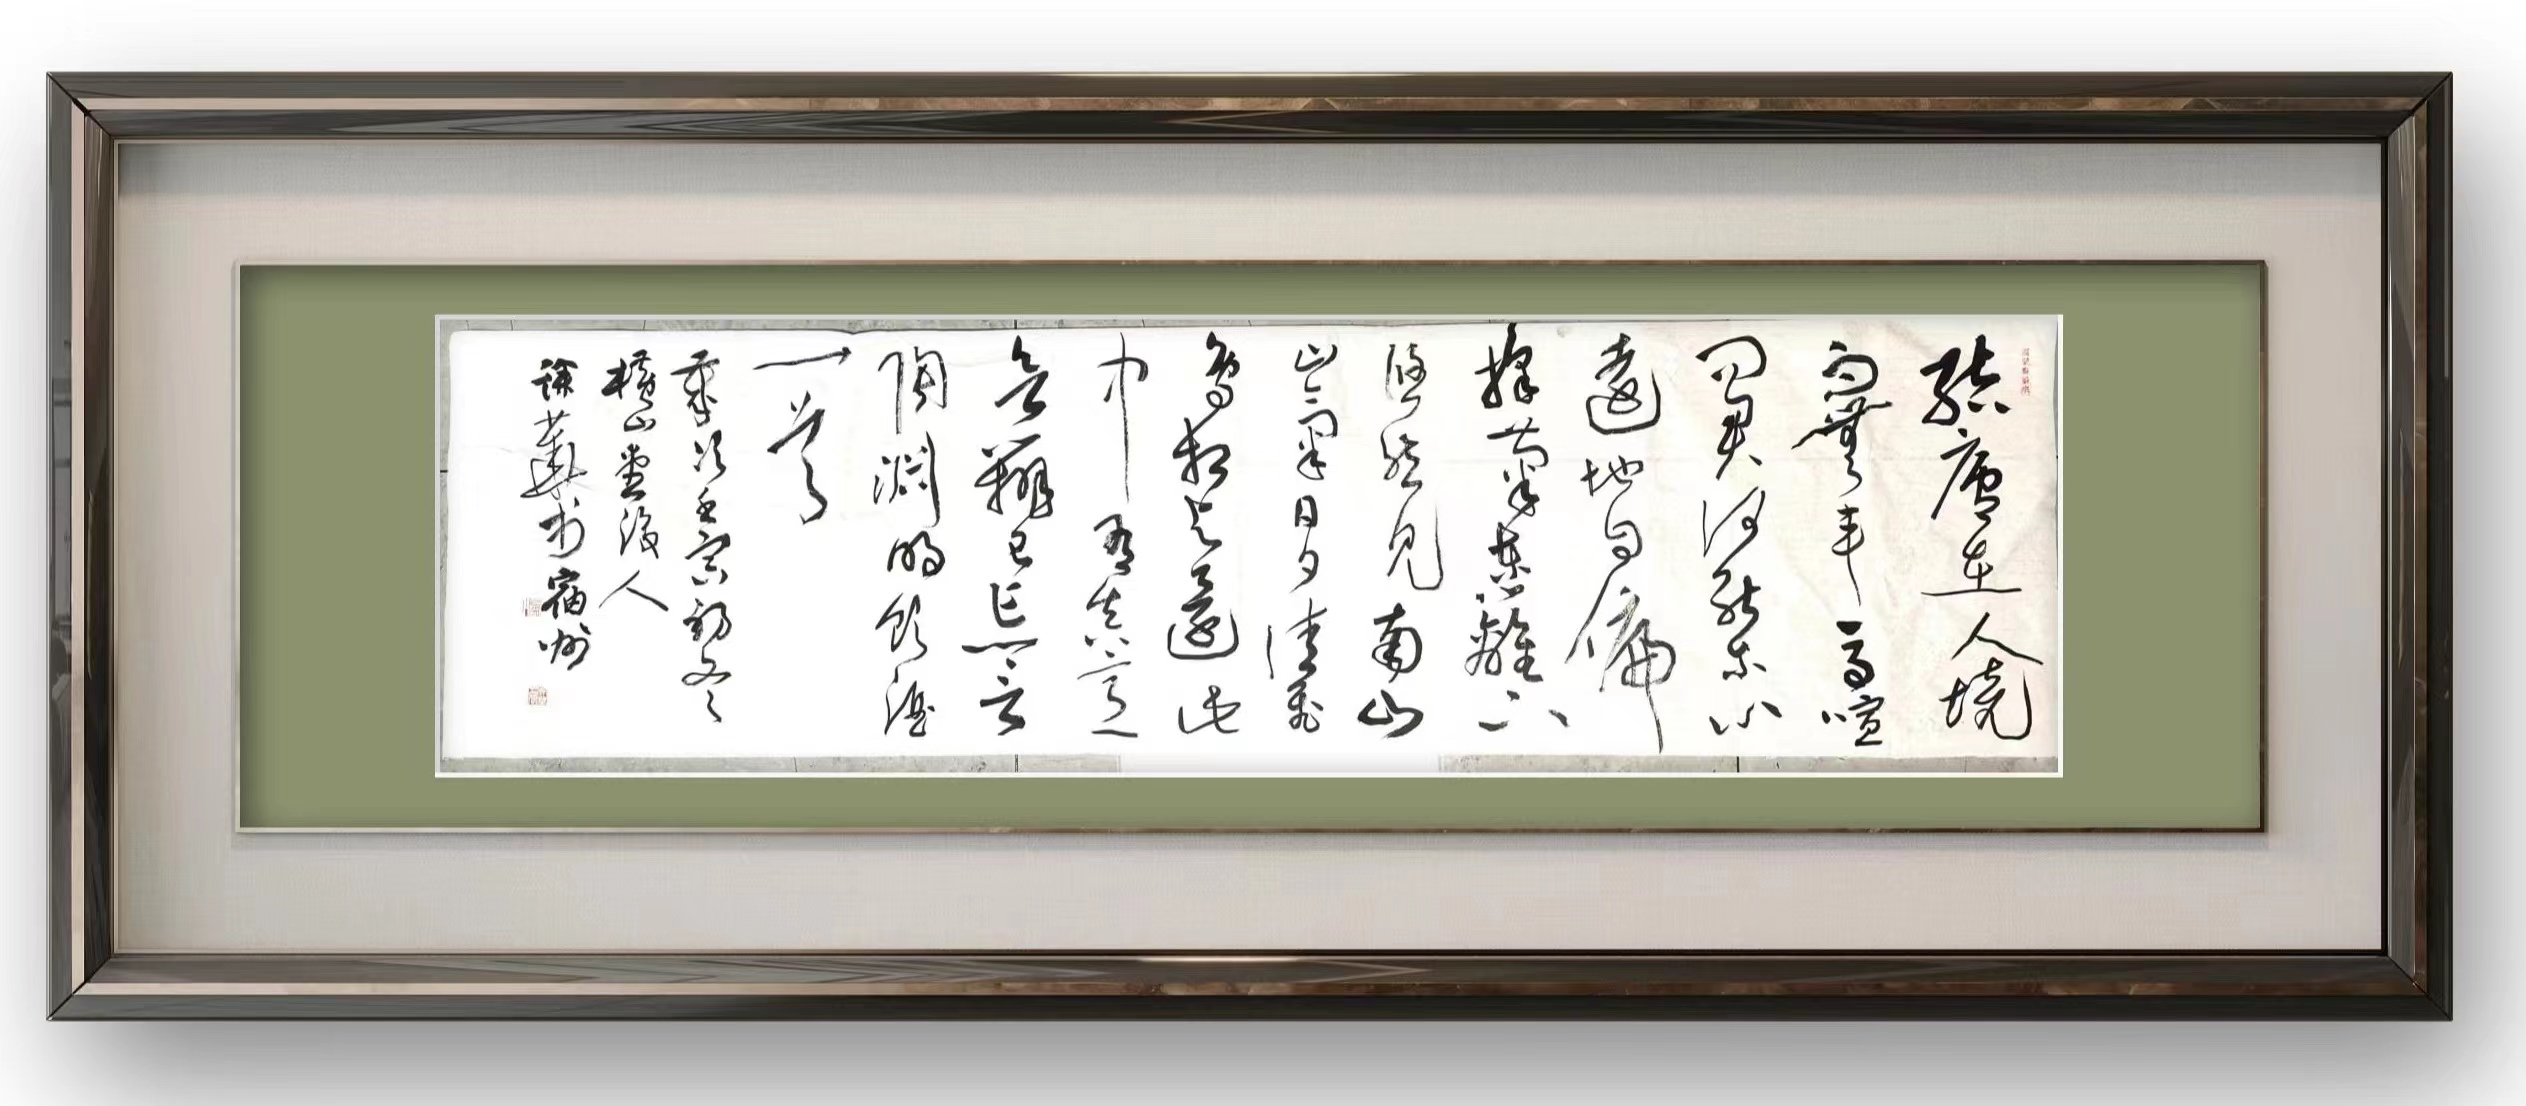 結廬在人境
而無車馬喧
問君何能爾心
遠地自偏
採菊東籬下
悠然見南山
山氣日夕佳飛
鳥相與還此
中有真意
欲辯已忘言
陶淵明飲酒
一首
歲次壬寅初冬
橫山堂後人
徐 於宿州